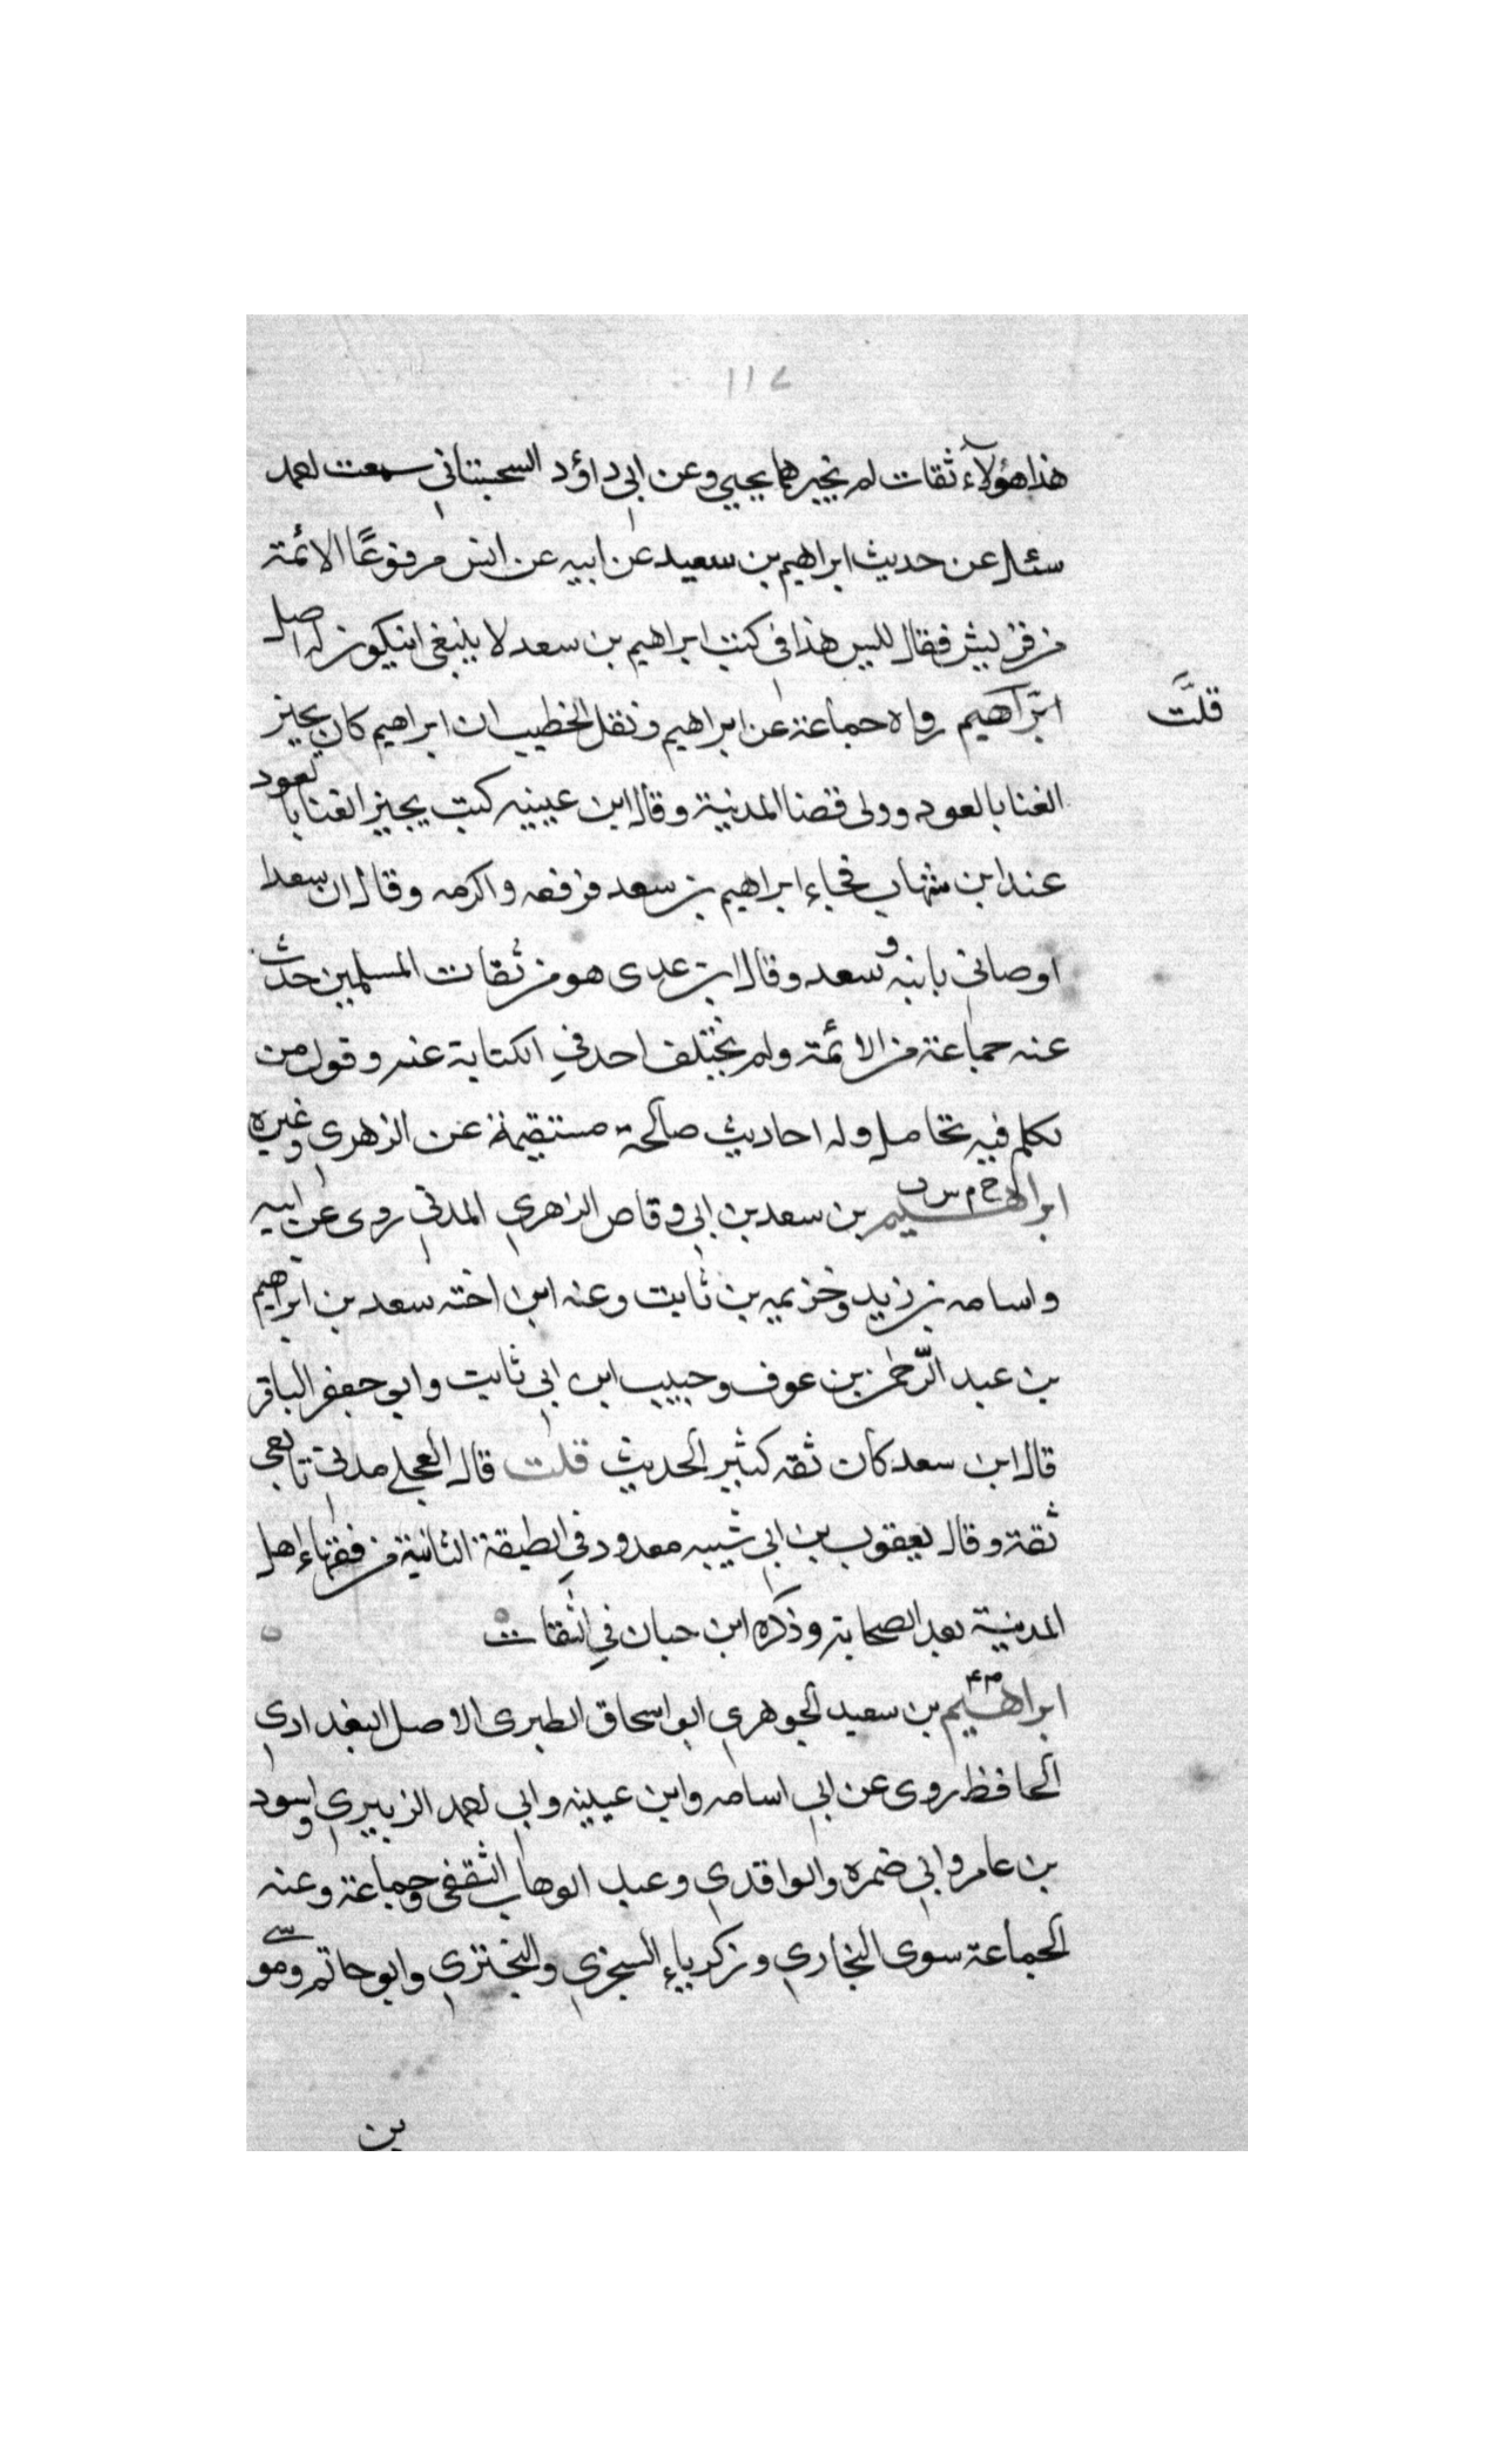 ١١٧
هذا هؤلاء ثقات لم يخبرهما يحيي وعن ابي داؤد السجستاني سمعت احمد
سئل عن حديث ابراهيم بن سعيد عن ابيه عن انس مرفوعًا الائمة
من قريش فقال ليس هذا في كتب ابراهيم بن سعد لا ينبغي انيكون له اصل
قلت
ابراهيم رواه جماعة عن ابراهيم ونقل الخطيب ان ابراهيم كان يجيز
الغنا بالعود وولى قضا المدنية وقال ابن عيينه كنت يجيز الغنا بالعود
عند ابن شهاب فجاء ابراهيم بن سعد فرفعه واكرمه وقال ان سعدا
اوصاني بابنه وسعد وقال ابن عدى هو من ثقات المسلمين حدث
عنه جماعة من الائمة ولم يختلف احد في الكتابة عنه وقول من
تكلم فيه تحامل وله احاديث صالحة مستقيمة عن الزهري وغيره
ابراهيم خ م س ق بن سعد بن ابي وقاص الزهري المدني روى عن ابيه
واسامه بن زيد وخزيمه بن ثابت وعنه ابن اخته سعد بن ابراهيم
بن عبد الرّحمٰن بن عوف وحبيب ابن ابي ثابت وابو جعفر الباقر
قال ابن سعد كان ثقه كثير الحديث قلت قال العجلي مدني تابعي
ثقة وقال يعقوب بن ابي شيبه معدود في الطبقة الثانية من فقهاء اهل
المدنية بعد الصحابة وذكره ابن حبان في الثقات
ابراهيم م٤ بن سعيد الجوهري ابو اسحاق الطبرى الاصل البغدادي
الحافظ روى عن ابي اسامه وابن عيينه وابي احمد الزبيري واسود
بن عامر وابي ضمره والواقدي وعبد الوهاب الثقفى وجماعة وعنه
الجماعة سوى البخاري وزكرياء السجزي والبختري وابو حاتم وموسى
بن